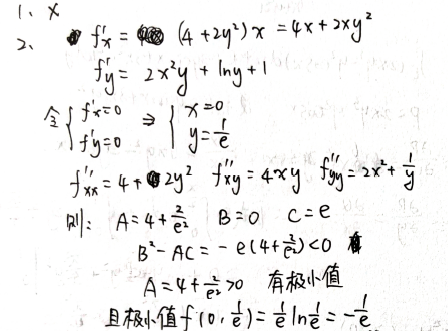 1、×
2、 f'x = (4+2y²)x = 4x+2xy²
f'y = 2x²y + lny + 1
令 { f'x=0 f'y=0 ⇒ { x=0 y=1/e
f''xx = 4+2y² f''xy = 4xy f''yy = 2x²+1/y
则: A=4+2/e² B=0 C=e
B²-AC = -e(4+2/e²)<0
A=4+2/e²>0 有极小值
且极小值 f(0,1/e) = 1/e ln1/e = -1/e